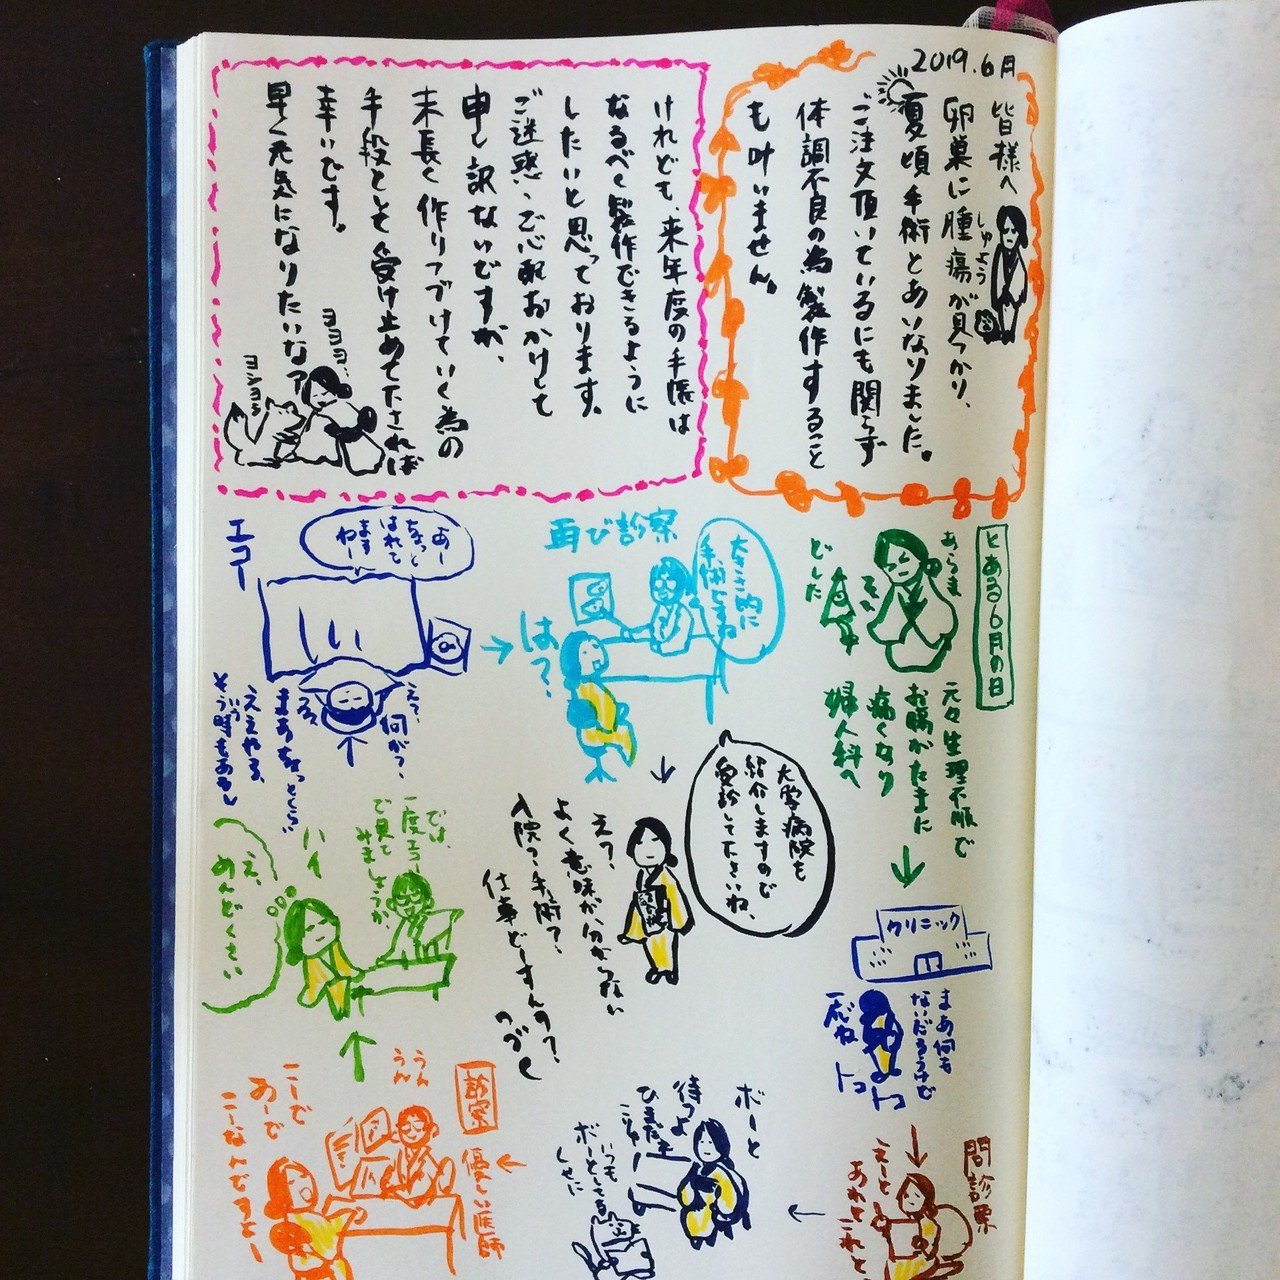 2019.6月
皆様へ
卵巣に腫瘍が見つかり、
しゅよう
夏頃手術とあいなりました。
ご注文頂いているにも関らず
体調不良の為製作すること
も叶いません。
けれども、来年度の手帳は
なるべく製作できるように
したいと思っております。
ご迷惑、ご心配おかけして
申し訳ないですが、
末長く作りつづけていく為の
手段として受け止めて下されば
幸いです。
早く元気になりたいなァ
ヨヨヨ、
ヨシヨシ
とある6月の日
あらま
どした
元々生理不順で
お腸がたまに
痛くなり
婦人科へ
クリニック
まあ何も
ないだろうけど
一応ね
トコトコ
問診票
えーと
あれこれと
ボーと
待つよ
ひまだ
いつも
ボーとしてる
くせに
診察
優しい医師
うんうん
こーで
あーで
こーなんですよー
では、
一度エコー
で見て
みましょうか
ハイ
え、
めんどくさい
エコー
あー
ちょっと
はれて
ます
ねー
えっ、何が?、
まあちょっとくらい
ええやろ、
そういう時もあるし
再び診察
大きさ的に
手術ですね
は?、
大学病院を
紹介しますので
受診して下さいね、
えっ?、
よく意味が分からない
入院?手術?
仕事どーすんの?
つづく